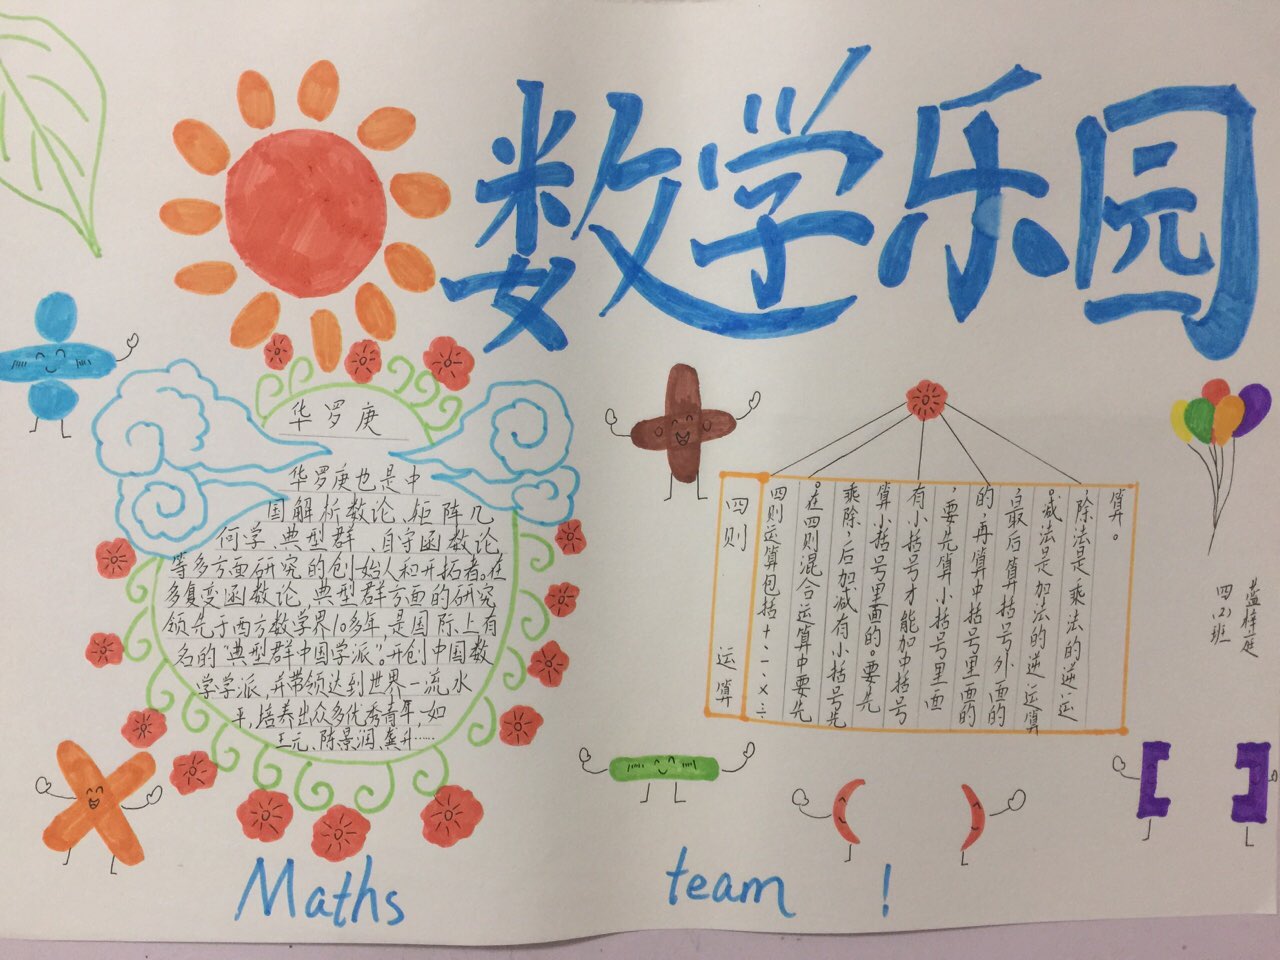 数学乐园
华罗庚
华罗庚也是中
国解析数论、矩阵几
何学、典型群、自守函数论
等多方面研究的创始人和开拓者。在
多复变函数论,典型群方面的研究
领先于西方数学界10多年,是国际上有
名的“典型群中国学派”。开创中国数
学学派,并带领达到世界一流水
平,培养出众多优秀青年,如
王元、陈景润、龚升……
四则 运算
四则运算包括+、-、×、÷
。在四则混合运算中要先
乘除,后加减有小括号先
算小括号里面的。要先
有小括号才能加中括号
,要先算小括号里面
的,再算中括号里面的
,最后算括号外面的
。减法是加法的逆运算
,除法是乘法的逆运
算。
四(2)班
Maths team !